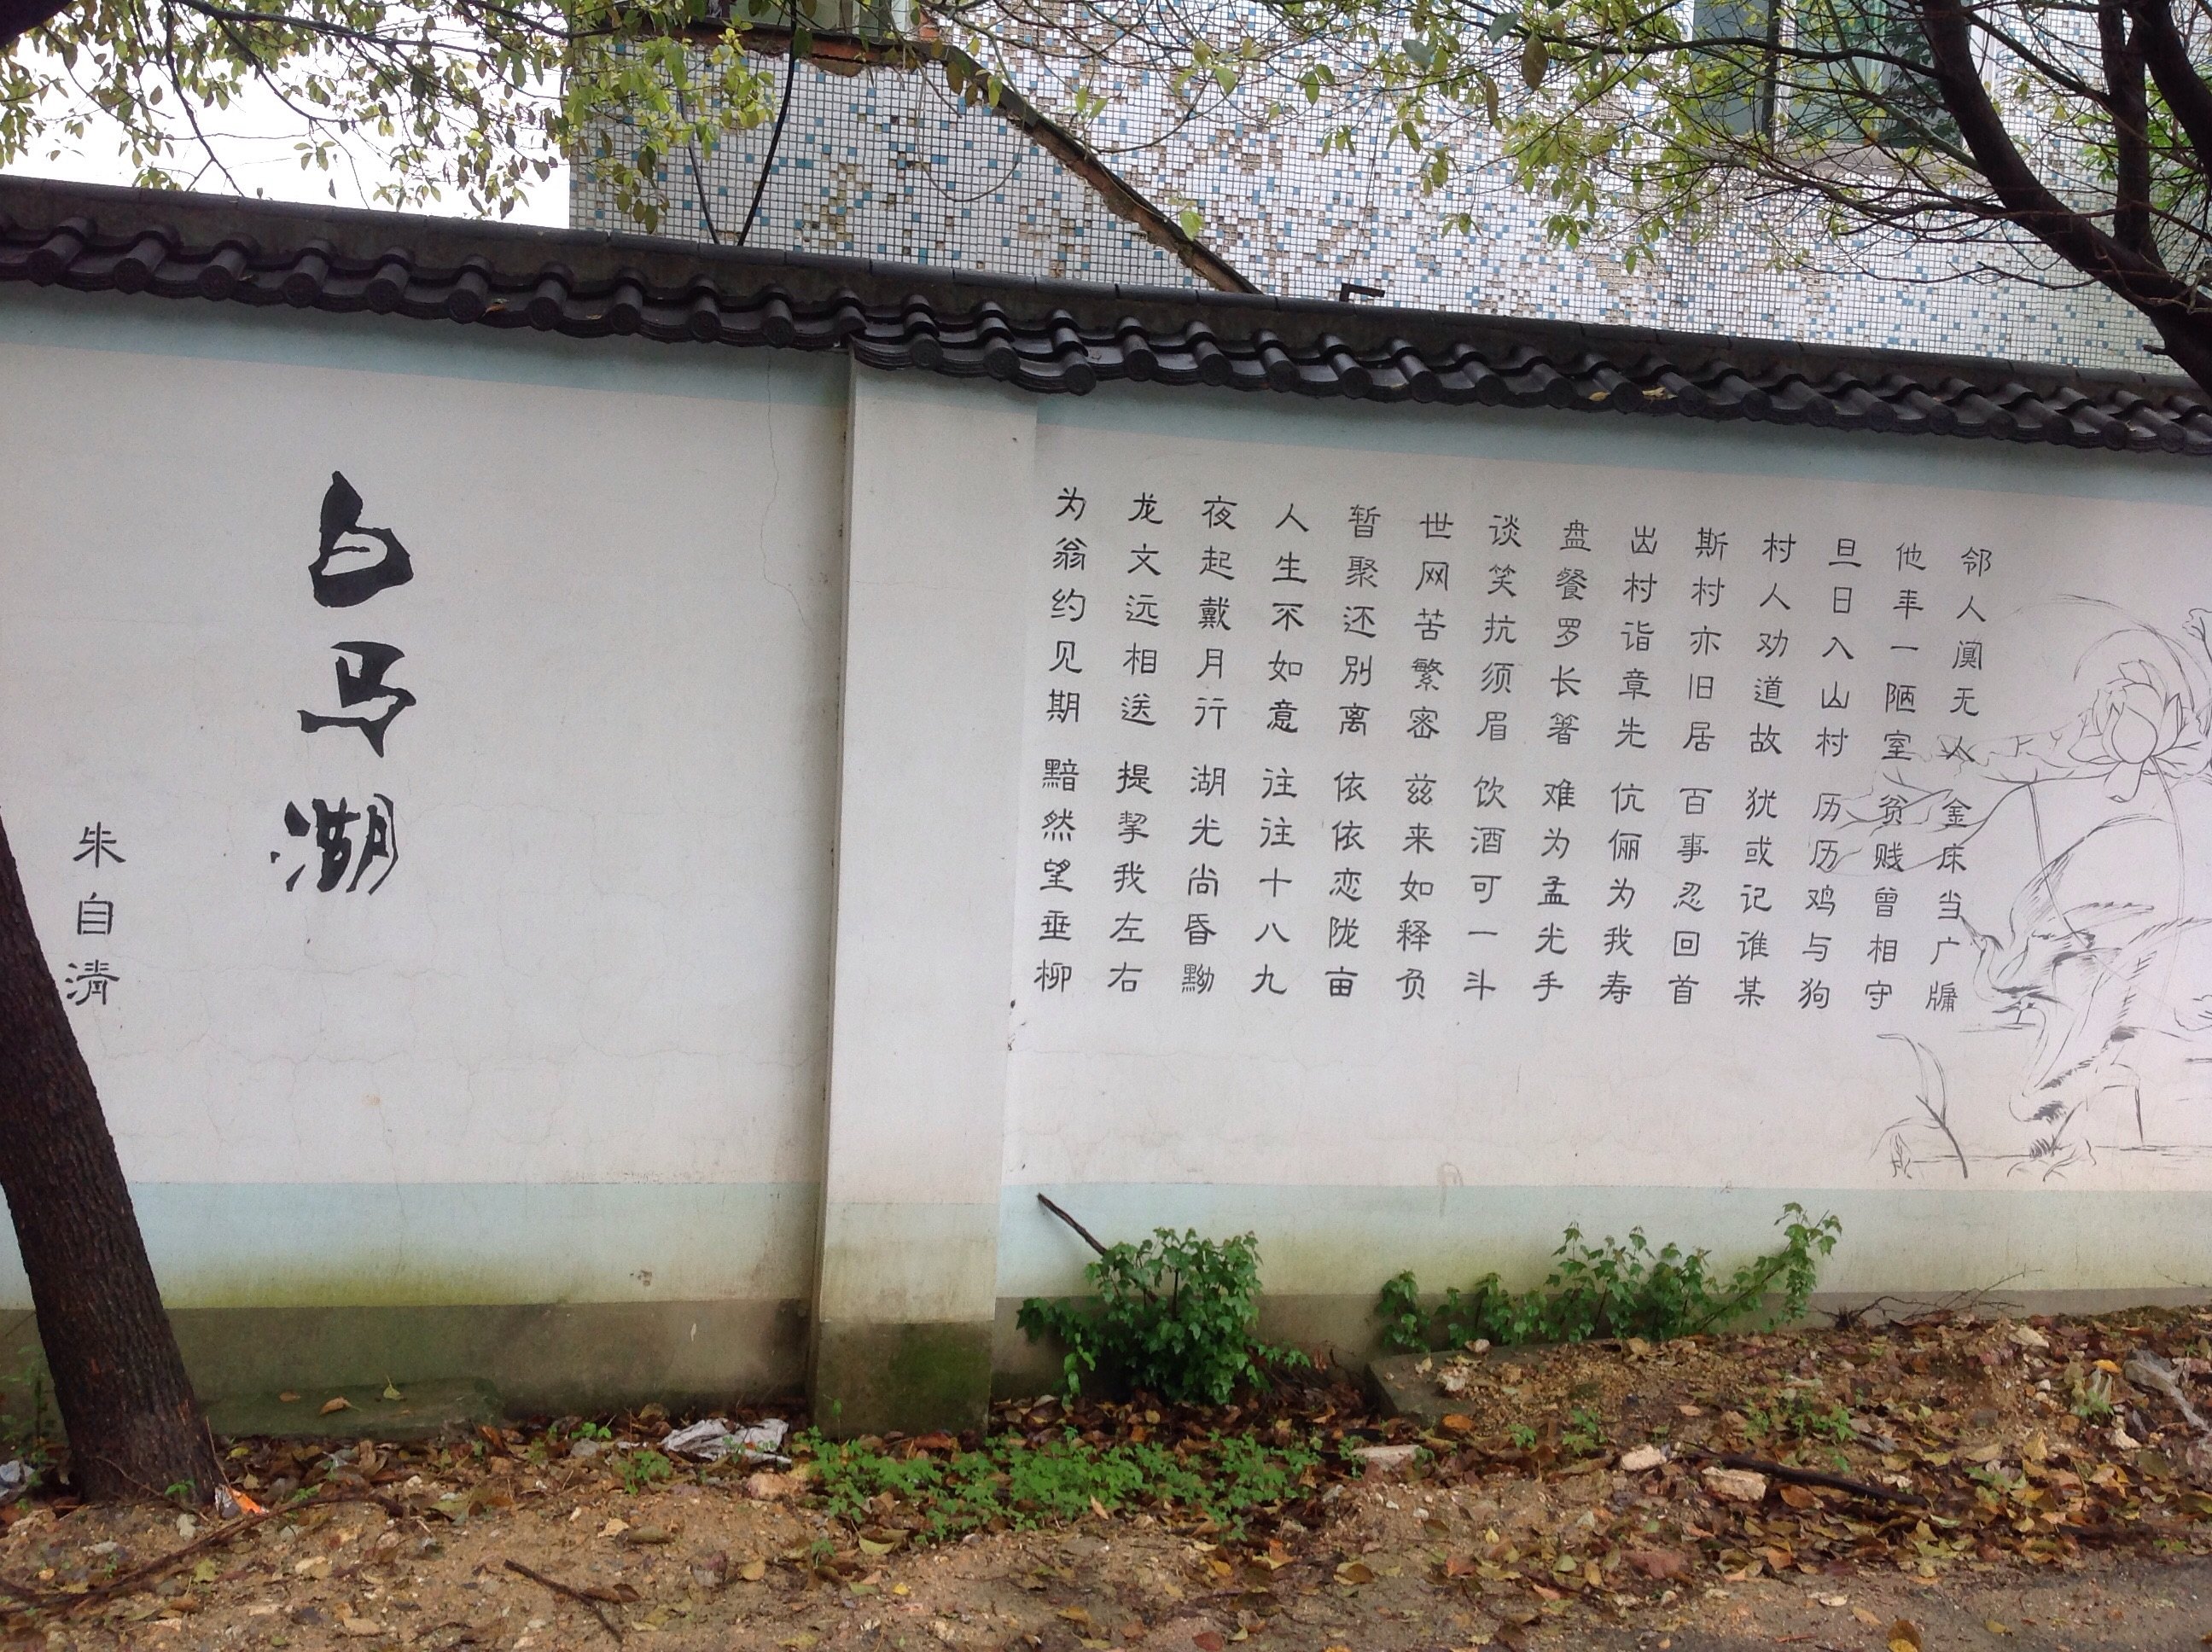 邻人阒无人 金床当广牖
他年一陋室 贫贱曾相守
旦日入山村 历历鸡与狗
村人劝道故 犹或记谁某
斯村亦旧居 百事忍回首
出村诣章先 伉俪为我寿
盘餐罗长箸 难为孟光手
谈笑抗须眉 饮酒可一斗
世网苦繁密 兹来如释负
暂聚还别离 依依恋陇亩
人生不如意 往往十八九
夜起戴月行 湖光尚昏黝
龙文远相送 提挈我左右
为翁约见期 黯然望垂柳
白马湖
朱自清